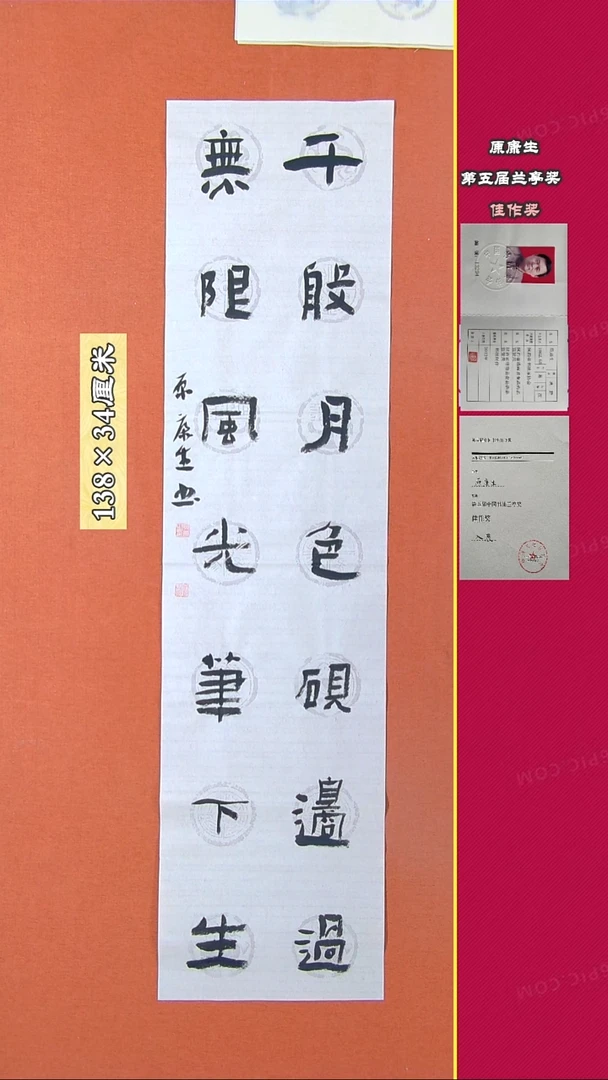 千般月色硯邊過
無限風光筆下生
原康生书
138×34厘米
原康生
第五届兰亭奖
佳作奖
原康生
佳作奖